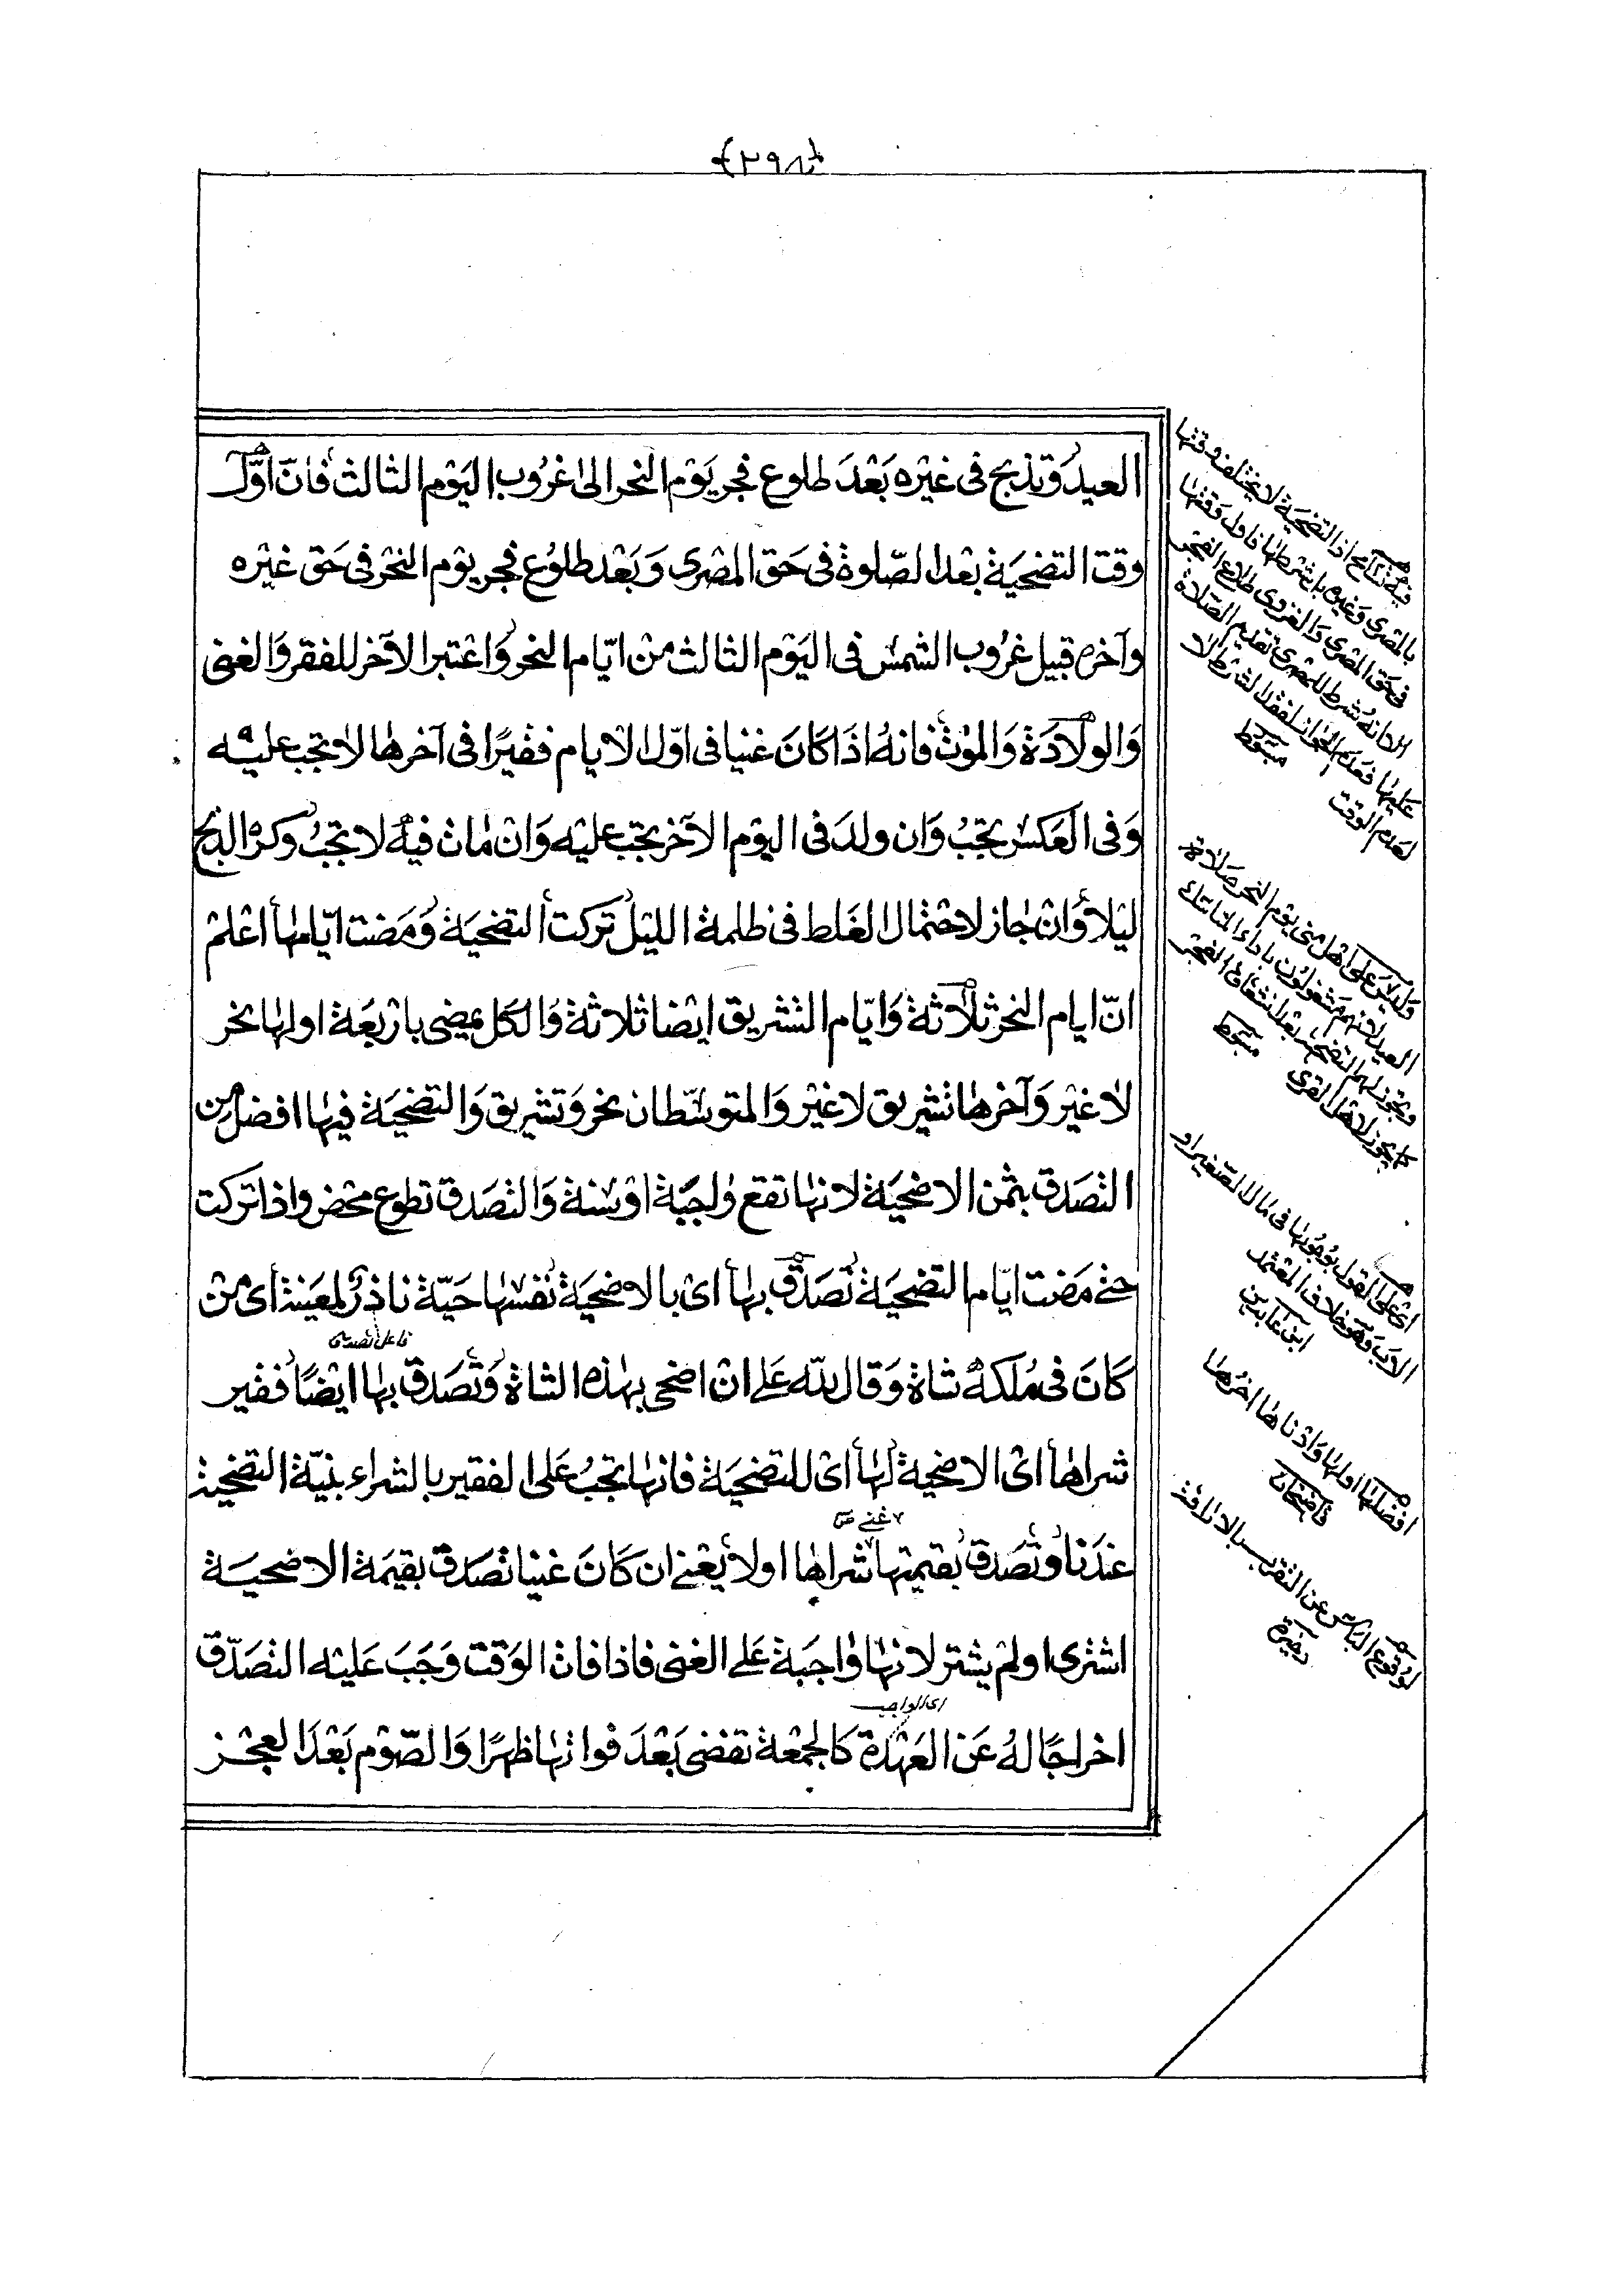 ﴿٢٩٨﴾
العيد وتذبح فى غيره بَعْدَ طلوع فجر يَوْم النحر الىٰ غرُوب اليَوْم الثالث فَانّ اوّل
وقت التضحيَة بعْد الصّلوة فى حَق المصْرى وَبَعْد طلوُع فجر يوْم النحْر فى حَق غيْره
وآخره قبيل غرُوب الشمسْ فى اليَوْم الثالث منْ ايّام النحر وَاعْتبر الآخر للفقر وَالغنى
وَالولَادَة وَالموْت فانهُ اذَا كَانَ غنيا فى اوّل الْايام فقيرًا فى آخرهَا لَا تجب عليْه
وَفى العَكسْ يجَبُ وَان ولدَ فى اليوْم الآخر يجَب عليْه وَانْ مَات فيْه لا تجَبُ وكره الذبح
ليْلًا وَانْ جَاز لاحْتمال الغَلط فى ظلمة الليْل تركت التضحيَة وَمَضت ايّامهَا اعْلمْ
انّ ايام النحْر ثلَاثة وَايّام التشريق ايْضا ثلاثة وَالكل يمضى باَرْبَعَة اولهَا نحر
لَا غيْر وَآخرهَا تشْريق لا غيْر وَالمتوسّطان نحر وَتشريق وَالتضحيَة فيهَا افضل من
التصَدق بثمن الاضحيَة لانهَا تقع وَاجبَة اوْ سنة وَالتصَدق تطوع محْض واذا تركت
حتى مَضت ايّام التضحيَة تُصَدّق بهَا اىْ بالاضحيَة نفسهَا حَيّة ناذرٌ لمعَينة اى منْ
فاعل تصدق
كَانَ فى مُلكه شاة وَقال للّه عَلى انْ اضحى بهٰذه الشاة وَتصَدق بهَا ايْضًا فقير
شراهَا اىْ الاضحية لهَا اى للتضحيَة فانهَا تجبُ عَلى الفقير بالشراء بنيّة التضحية
غنى
عنْدَنا وَتُصَدق بقيمتهَا شراهَا اولَا يعْنى ان كَانَ غنيا تصَدق بقيمَة الاضحيَة
اشترى اولمْ يشتر لانهَا وَاجبَة عَلى الغنى فاذا فات الوَقت وَجَبَ عَليْه التصَدّق
اى الواجب
اخراجًا لهُ عَن العُهْدة كَالجمْعة تقضى بَعْدَ فواتهَا ظهرًا وَالصّوْم بَعْدَ العجْز
اذ التضحيَة لا يختلف وقتها
بالمصْرى وَغيره بل شرطهَا فاول وَقتهَا
فى حَق المصْرى وَالقروى طلوع الفجْر
الا انهُ شرط للمصْرى تقديم الصّلاة
عَليهَا فعَدم الجوَاز لفقد الشرْط لا
لعَدم الوقت
مبسوط
وَليْسَ عَلى اهْل منى يَوْم النحر صَلاة
العيد لانهم مَشغولوُن باداء المناسك
وَيجوز لهم التضحية بعْد انشقاق الفجْر
كمَا يجوز لاهْل القرى
مبسوط
اى عَلى القول بوُجُوبهَا فى مَال الصّغير او
الاب وَهوَ خلاف المعْتمد
ابن عَابدين
افضلهَا اولهَا وَادْناهَا اخرُهَا
قاضيخان
لوُقوع اليَأس عن التقرب بالاراقة
ذخيرة